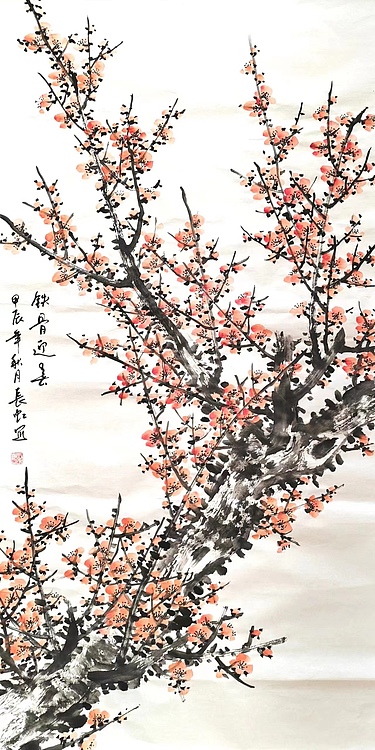 铁骨迎春
甲辰年秋月長虹寫